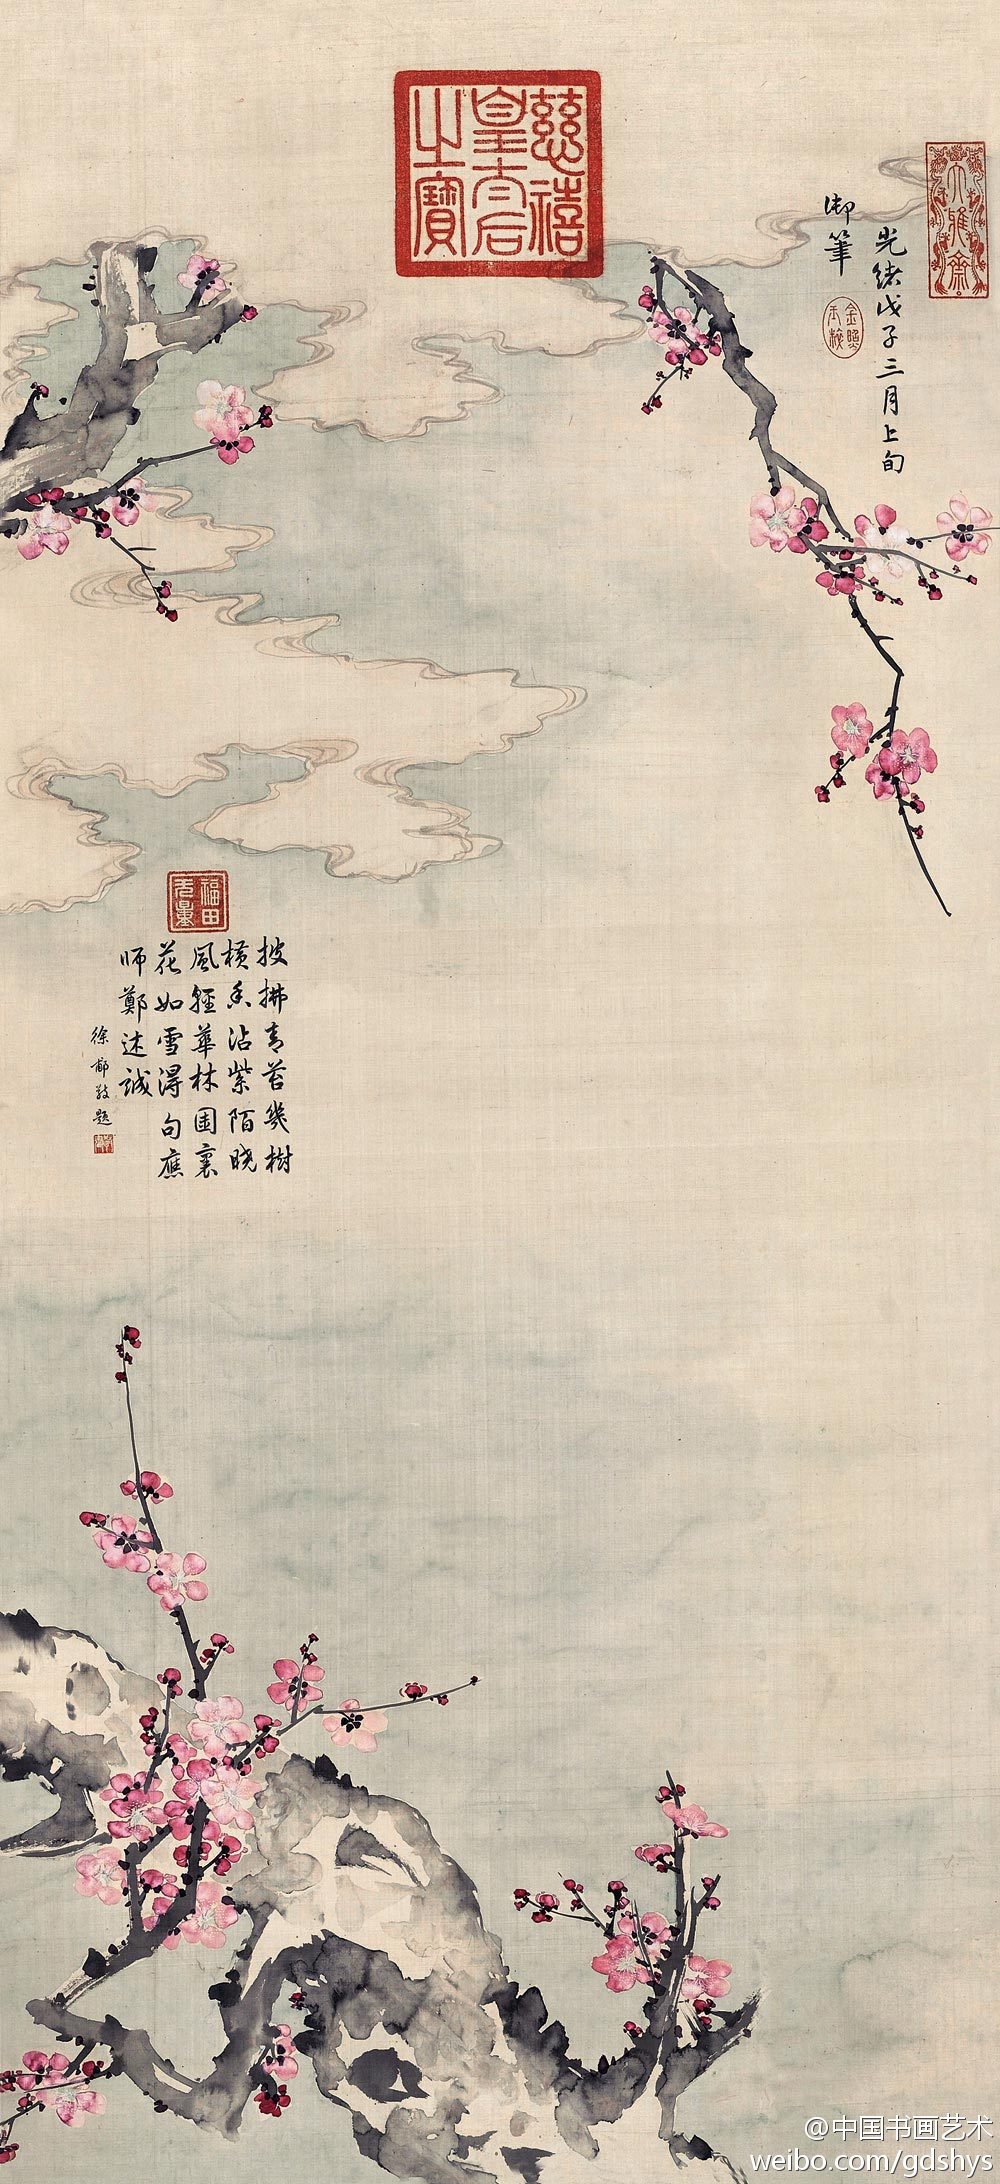 大雅齋
光緒戊子三月上旬
御筆
慈禧
皇太后
之寶
福田
无量
披拂青苔幾樹
橫香沾紫陌曉
風輕華林園裏
花如雪得句應
師鄭述誠
徐郙敬題
@中国书画艺术
weibo.com/gdshys